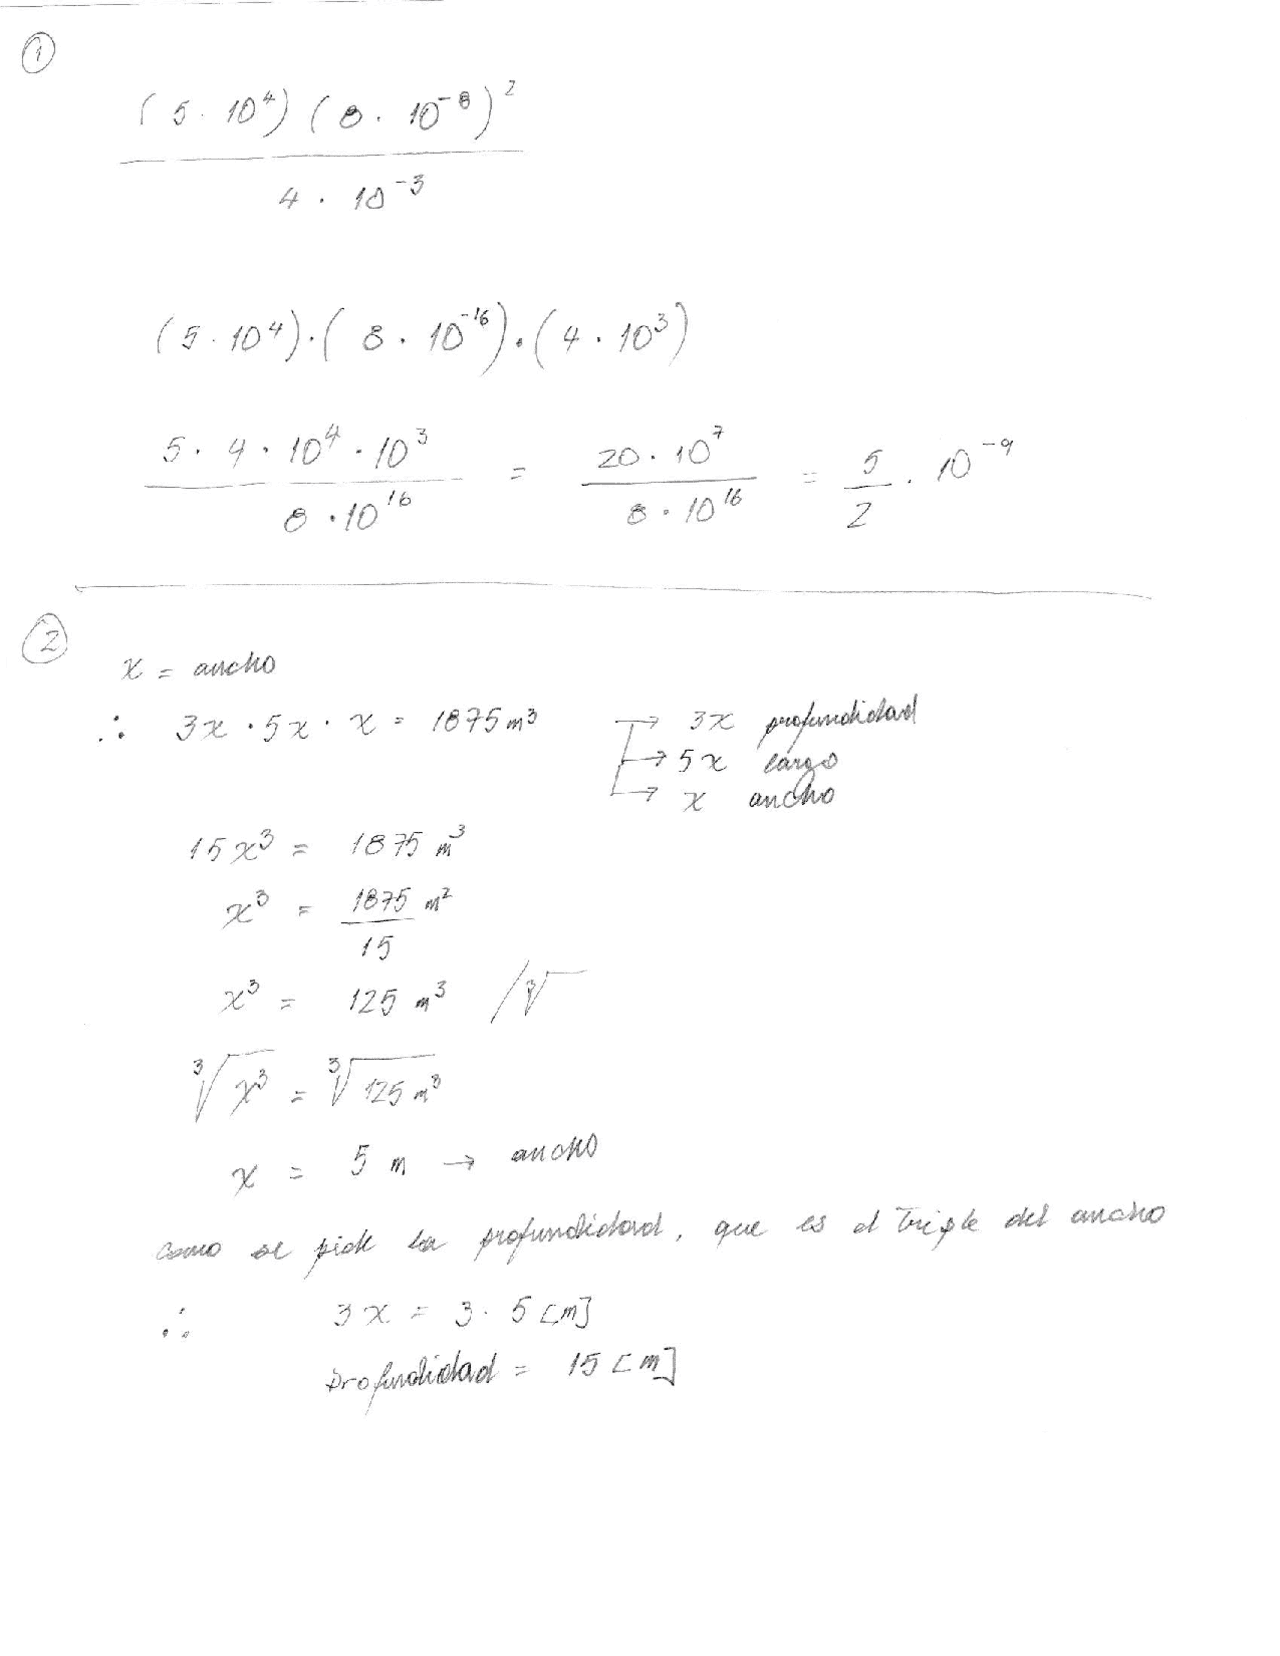 1
(5 · 10⁴) (8 · 10⁻⁸)²
4 · 10⁻³
(5 · 10⁴) · (8 · 10⁻¹⁶) · (4 · 10³)
5 · 4 · 10⁴ · 10³ = 20 · 10⁷ = 5 · 10⁻⁹
8 · 10¹⁶ 8 · 10¹⁶ 2
2
x = ancho
∴ 3x · 5x · x = 1875 m³ → 3x profundidad
→ 5x largo
→ x ancho
15x³ = 1875 m³
x³ = 1875 m²
15
x³ = 125 m³ /∛
∛x³ = ∛125 m³
x = 5 m → ancho
como se pide la profundidad, que es el triple del ancho
∴ 3x = 3 · 5 [m]
profundidad = 15 [m]